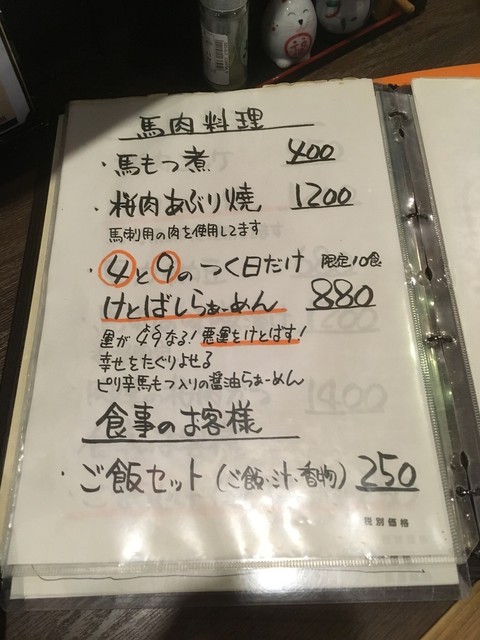 馬肉料理
・馬もつ煮 400
・桜肉あぶり焼 1200
馬刺用の肉を使用してます
・4と9のつく日だけ 限定10食
けとばしらぁーめん 880
悪運をけとばす!
幸せをたぐりよせる
ピリ辛馬もつ入りの醤油らぁーめん
食事のお客様
・ご飯セット(ご飯・汁・香物) 250
税別価格
福